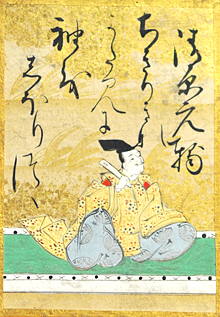 清原元輔
ちきりきな
かたみに
袖を
しほりつゝ